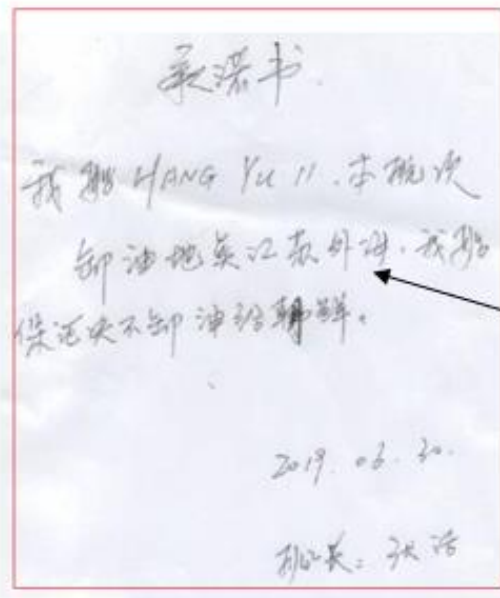 承诺书.
我船 HANG YU 11. 本航次
卸油地点江苏外海. 我船
保证决不卸油给朝鲜.
2019. 06. 30.
船长: 张浩